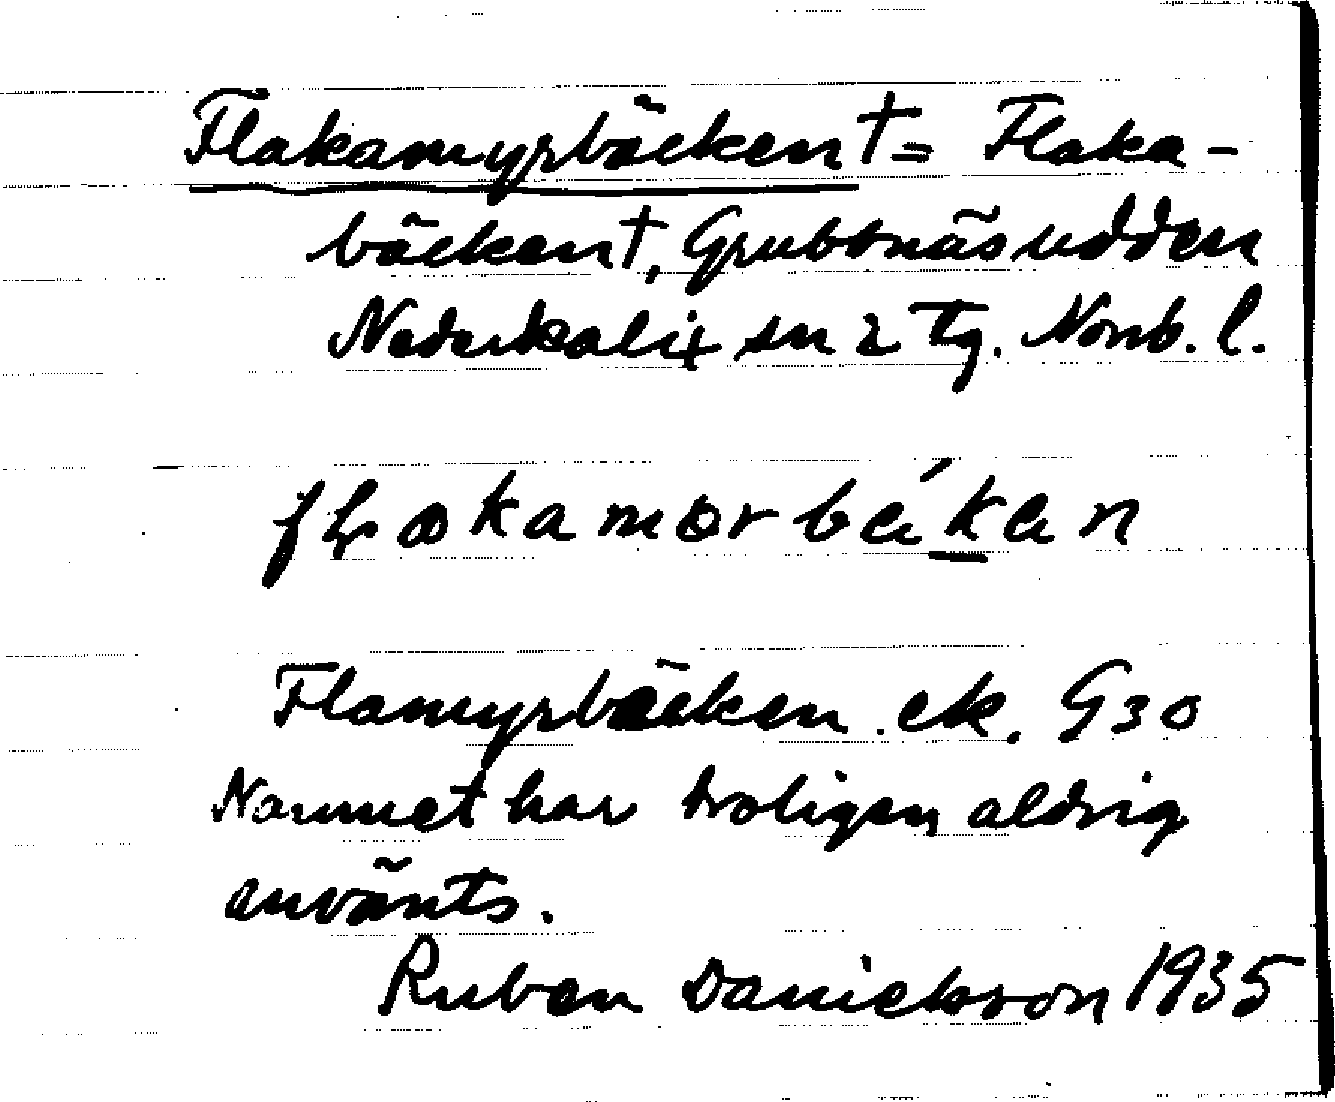 Flakamyrbäcken† = Flaka-
bäcken†, Grubbnäsudden
Nederkalix sn 2 Tg. Norrb. l.
Flamyrbäcken. ek. G30
Namnet har troligen aldrig
använts.
Ruben Danielsson 1935